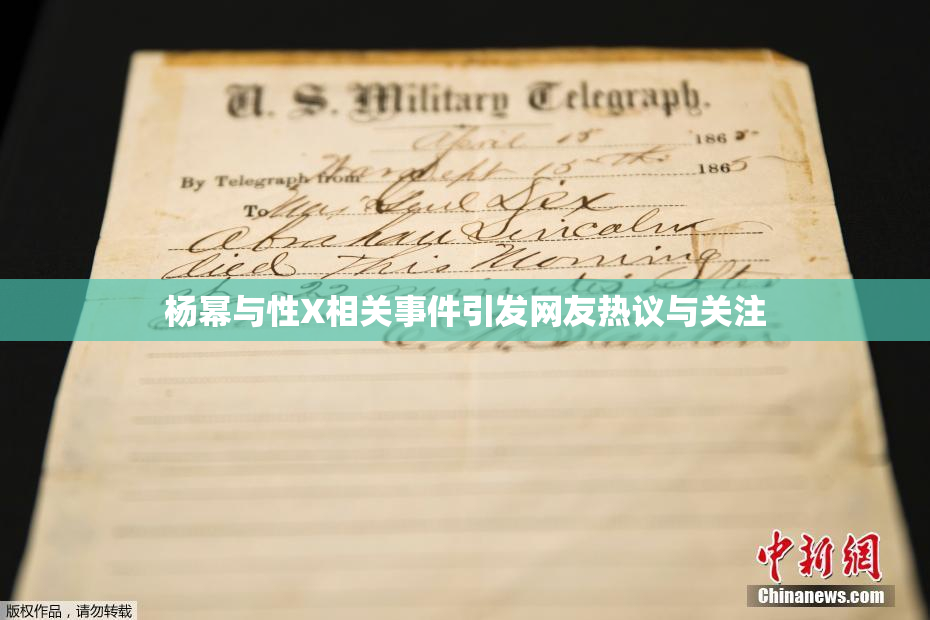 U. S. Military Telegraph.
April 15 1865
By Telegraph from War Dept 15th 1865
To Maj Genl Dix
Abraham Lincoln
died This Morning
at 22 minutes after
杨幂与性X相关事件引发网友热议与关注
E. M. Stanton
中新网
Chinanews.com
版权作品，请勿转载